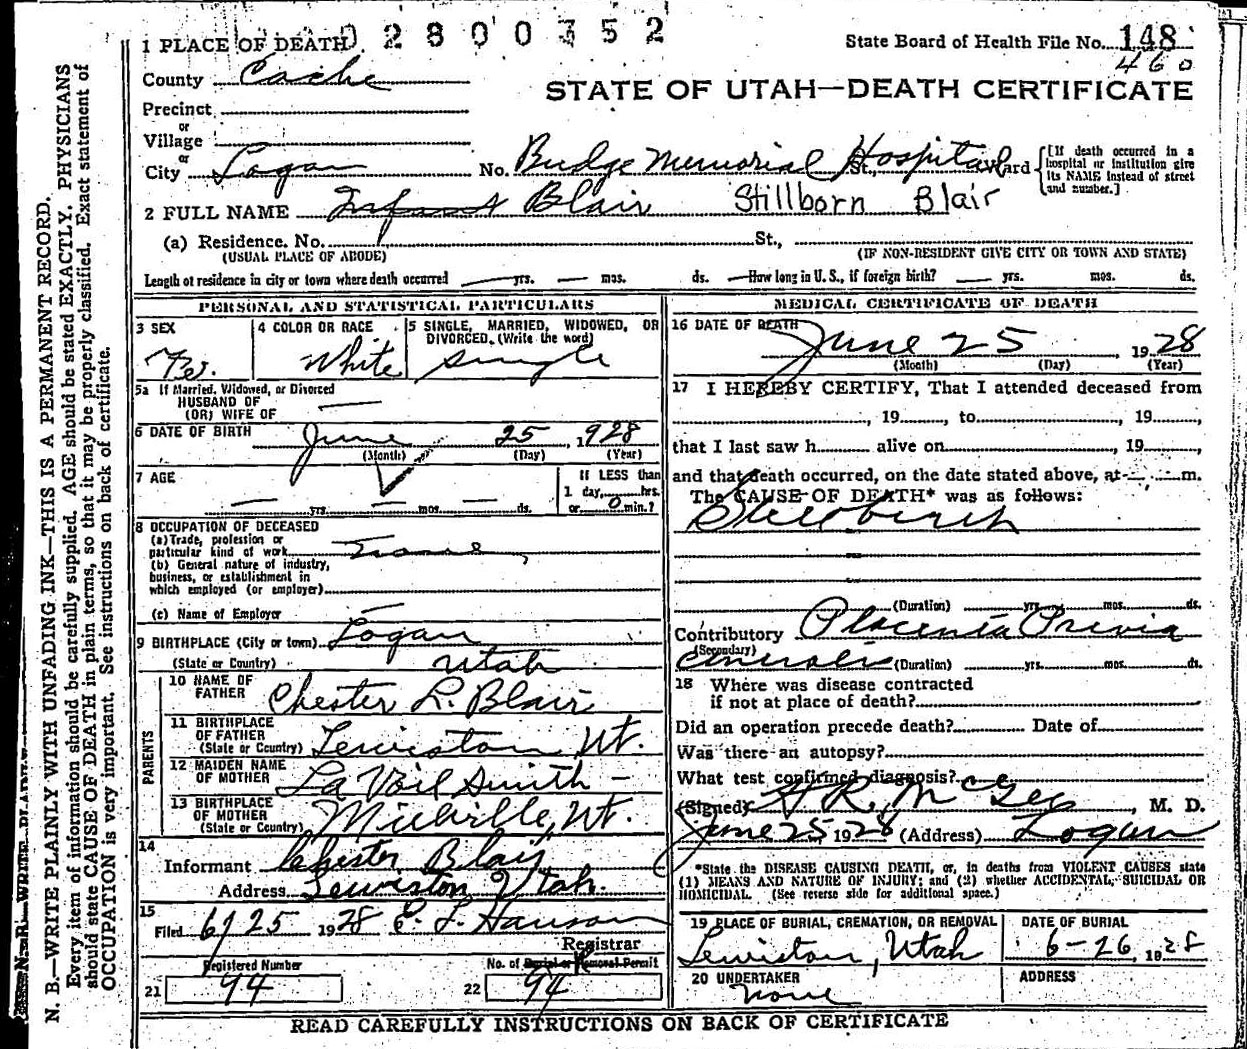 02800352
1 PLACE OF DEATH
State Board of Health File No. 148
460
County Cache
STATE OF UTAH—DEATH CERTIFICATE
Precinct
or
Village
or
City Logan No. Budge Memorial Hospital St., Ward
[If death occurred in a hospital or institution give its NAME instead of street and number.]
2 FULL NAME Infant Blair Stillborn Blair
(a) Residence. No. St.,
(USUAL PLACE OF ABODE) (IF NON-RESIDENT GIVE CITY OR TOWN AND STATE)
Length of residence in city or town where death occurred — yrs. — mos. ds. — How long in U. S., if foreign birth? — yrs. mos. ds.
PERSONAL AND STATISTICAL PARTICULARS
3 SEX Fe.
4 COLOR OR RACE White
5 SINGLE, MARRIED, WIDOWED, OR DIVORCED. (Write the word) Single
5a If Married, Widowed, or Divorced
HUSBAND OF
(OR) WIFE OF —
6 DATE OF BIRTH June 25, 1928
(Month) (Day) (Year)
7 AGE
— yrs. — mos. — ds.
If LESS than
1 day, hrs.
or 0 min.?
8 OCCUPATION OF DECEASED
(a) Trade, profession or
particular kind of work
(b) General nature of industry,
business, or establishment in
which employed (or employer)
(c) Name of Employer —
9 BIRTHPLACE (City or town) Logan
(State or Country) Utah
PARENTS
10 NAME OF FATHER Chester L. Blair
11 BIRTHPLACE OF FATHER (State or Country) Lewiston, Ut.
12 MAIDEN NAME OF MOTHER La Voil Smith —
13 BIRTHPLACE OF MOTHER (State or Country) Millville, Ut.
14
Informant Chester Blair
Address Lewiston, Utah.
15
Filed 6/25 1928 E. L. Hanson
Registrar
Registered Number
21 94
No. of Burial or Removal Permit
22 94
MEDICAL CERTIFICATE OF DEATH
16 DATE OF DEATH June 25 1928
(Month) (Day) (Year)
17 I HEREBY CERTIFY, That I attended deceased from
, 19 , to , 19 ,
that I last saw h alive on , 19 ,
and that death occurred, on the date stated above, at — m.
The CAUSE OF DEATH* was as follows:
Stillbirth
(Duration) yrs. mos. ds.
Contributory Placenta Previa
(Secondary)
centralis (Duration) yrs. mos. ds.
18 Where was disease contracted
if not at place of death?
Did an operation precede death? Date of
Was there an autopsy?
What test confirmed diagnosis?
(Signed) H. R. McGee, M. D.
June 25 1928 (Address) Logan
*State the DISEASE CAUSING DEATH, or, in deaths from VIOLENT CAUSES state
(1) MEANS AND NATURE OF INJURY; and (2) whether ACCIDENTAL, SUICIDAL OR
HOMICIDAL. (See reverse side for additional space.)
19 PLACE OF BURIAL, CREMATION, OR REMOVAL
Lewiston, Utah
DATE OF BURIAL
6-26, 1928
20 UNDERTAKER
none
ADDRESS
READ CAREFULLY INSTRUCTIONS ON BACK OF CERTIFICATE
N. B.—WRITE PLAINLY WITH UNFADING INK—THIS IS A PERMANENT RECORD.
Every item of information should be carefully supplied. AGE should be stated EXACTLY. PHYSICIANS
should state CAUSE OF DEATH in plain terms, so that it may be properly classified. Exact statement of
OCCUPATION is very important. See instructions on back of certificate.